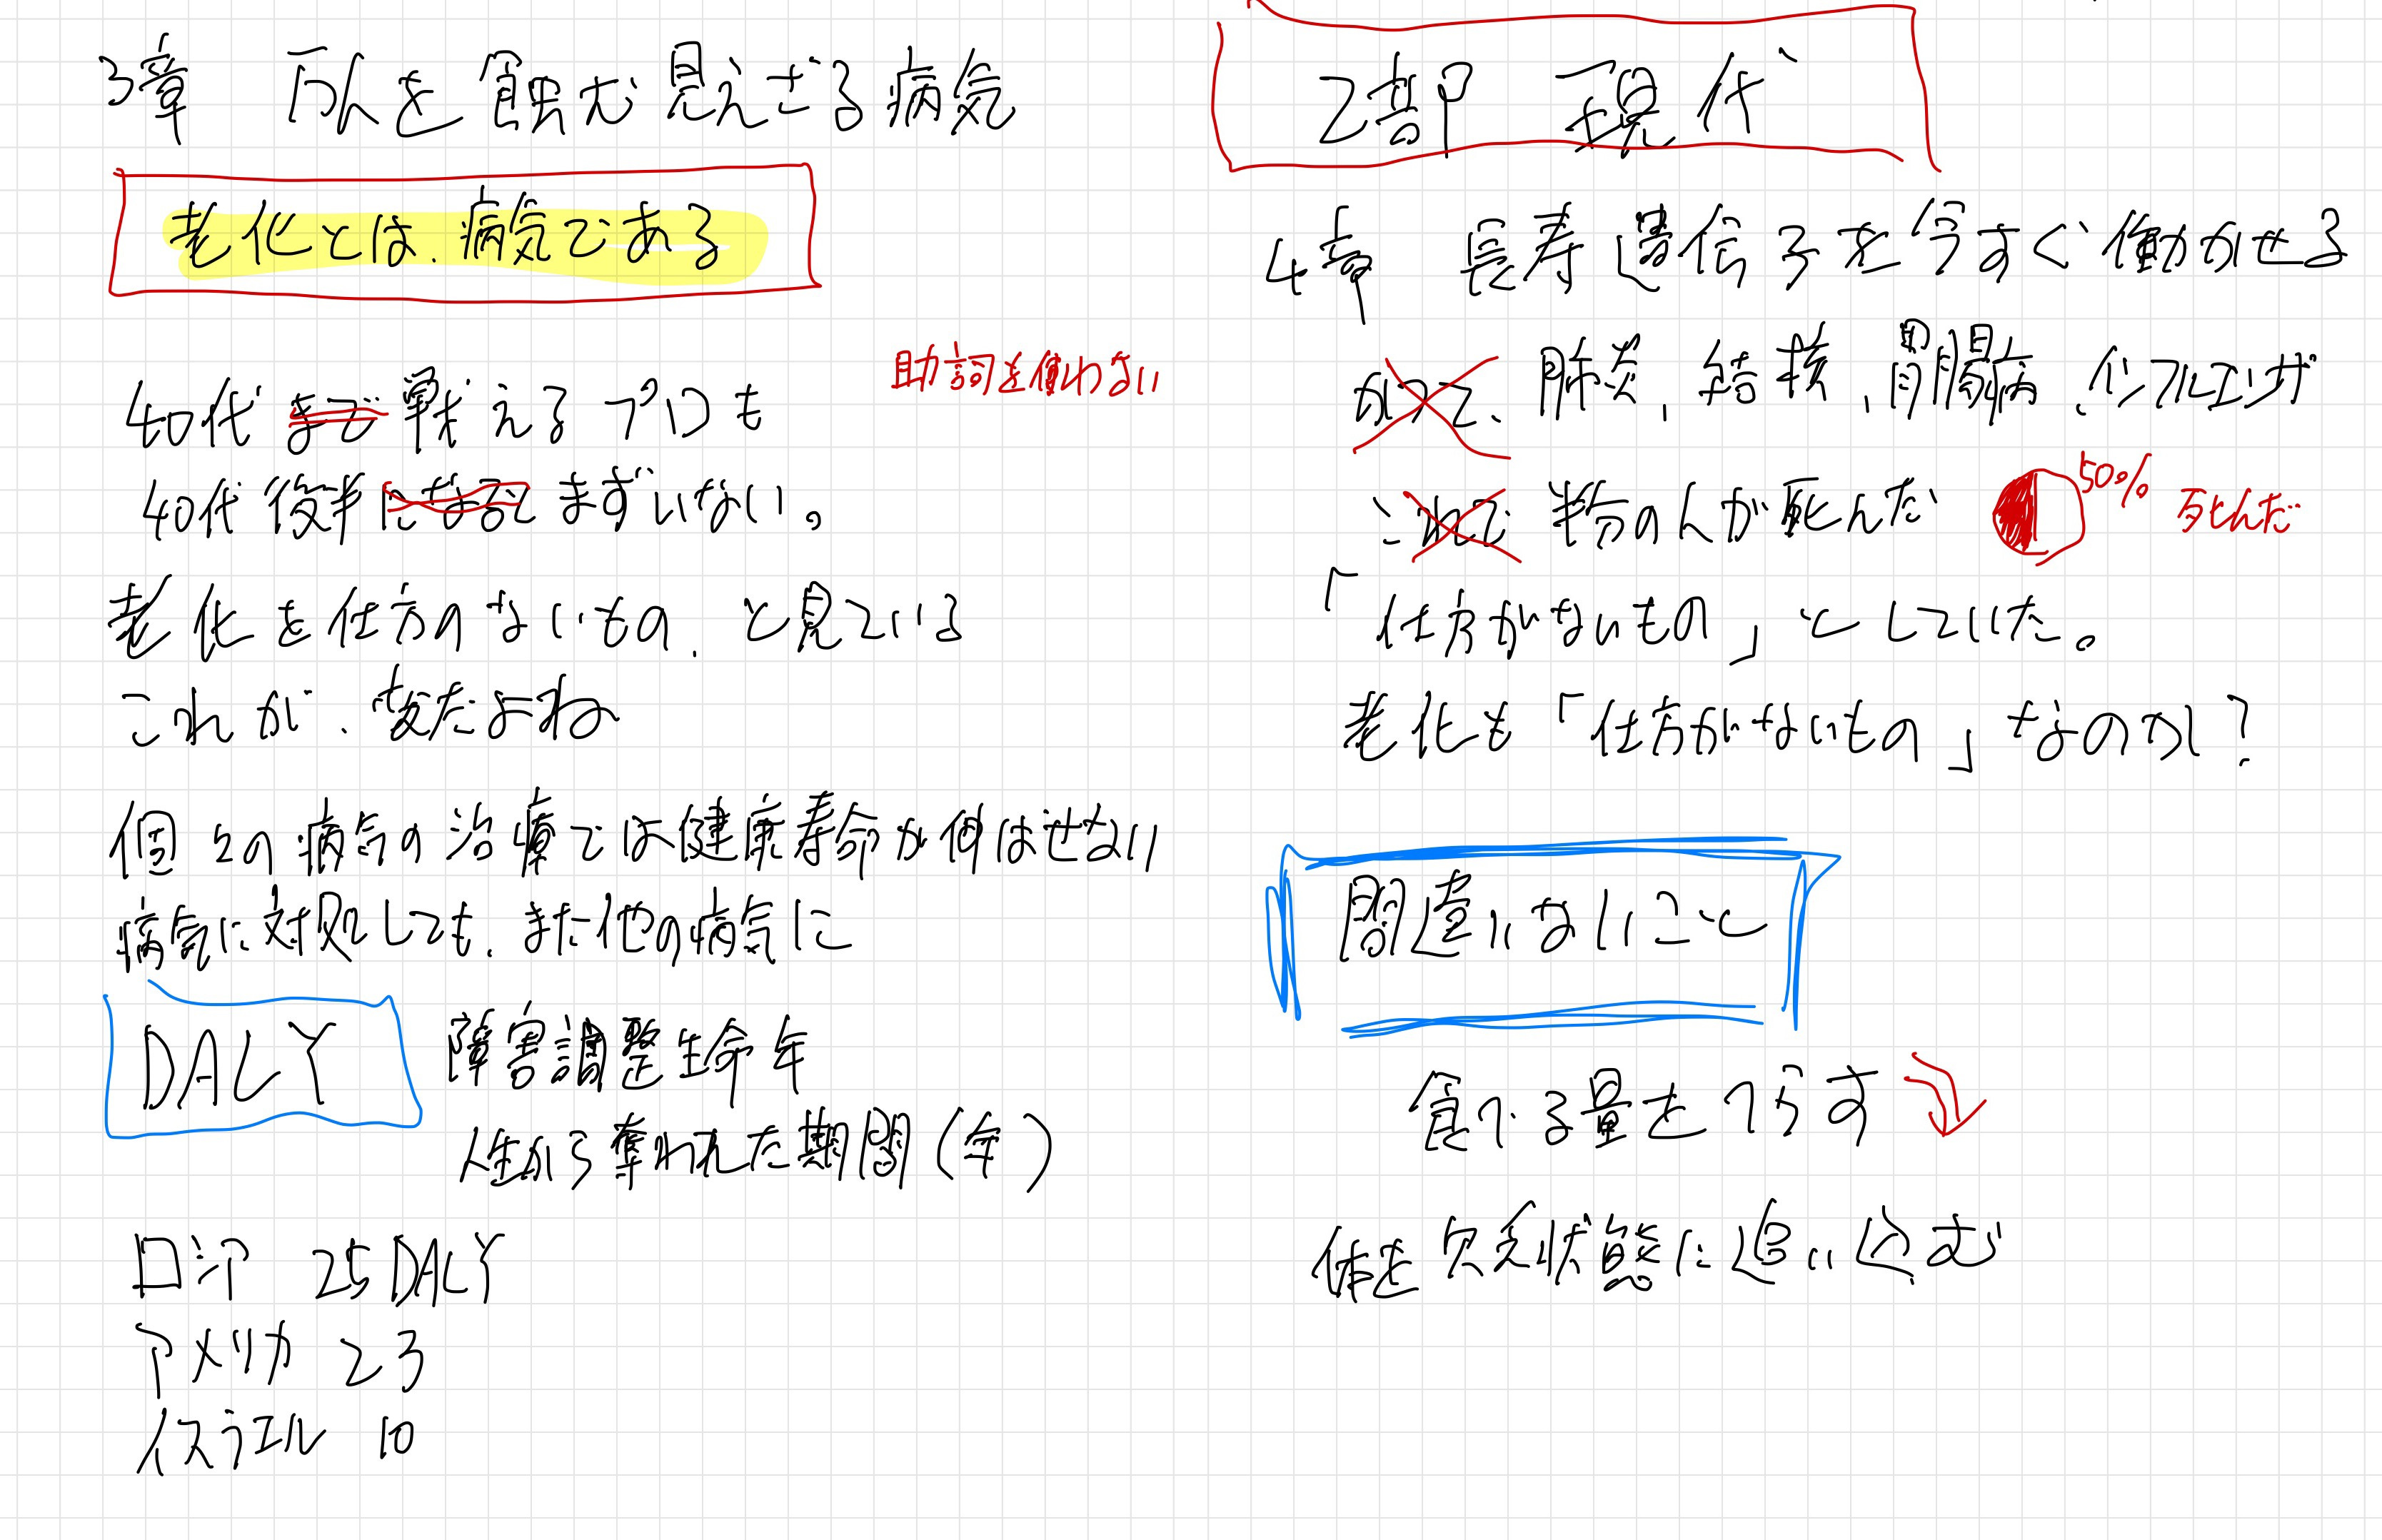 3章 万人を蝕む見えざる病気
老化とは、病気である
助詞を使わない
40代まで戦えるプロも
40代後半になるとまずいない。
老化を仕方のないもの、と見ている
これが、変だよね
個々の病気の治療では健康寿命が伸ばせない
病気に対処しても、また他の病気に
DALY 障害調整生命年
人生から奪われた期間(年)
ロシア 25DALY
アメリカ 23
イスラエル 10
2部 現代
4章 長寿遺伝子を今すぐ働かせる
かつて、肺炎、結核、胃腸病、インフルエンザ
これで 半分の人が死んだ 50% 死んだ
「仕方がないもの」としていた。
老化も「仕方がないもの」なのか?
間違いないこと
食べる量をへらす
体を欠乏状態に追い込む